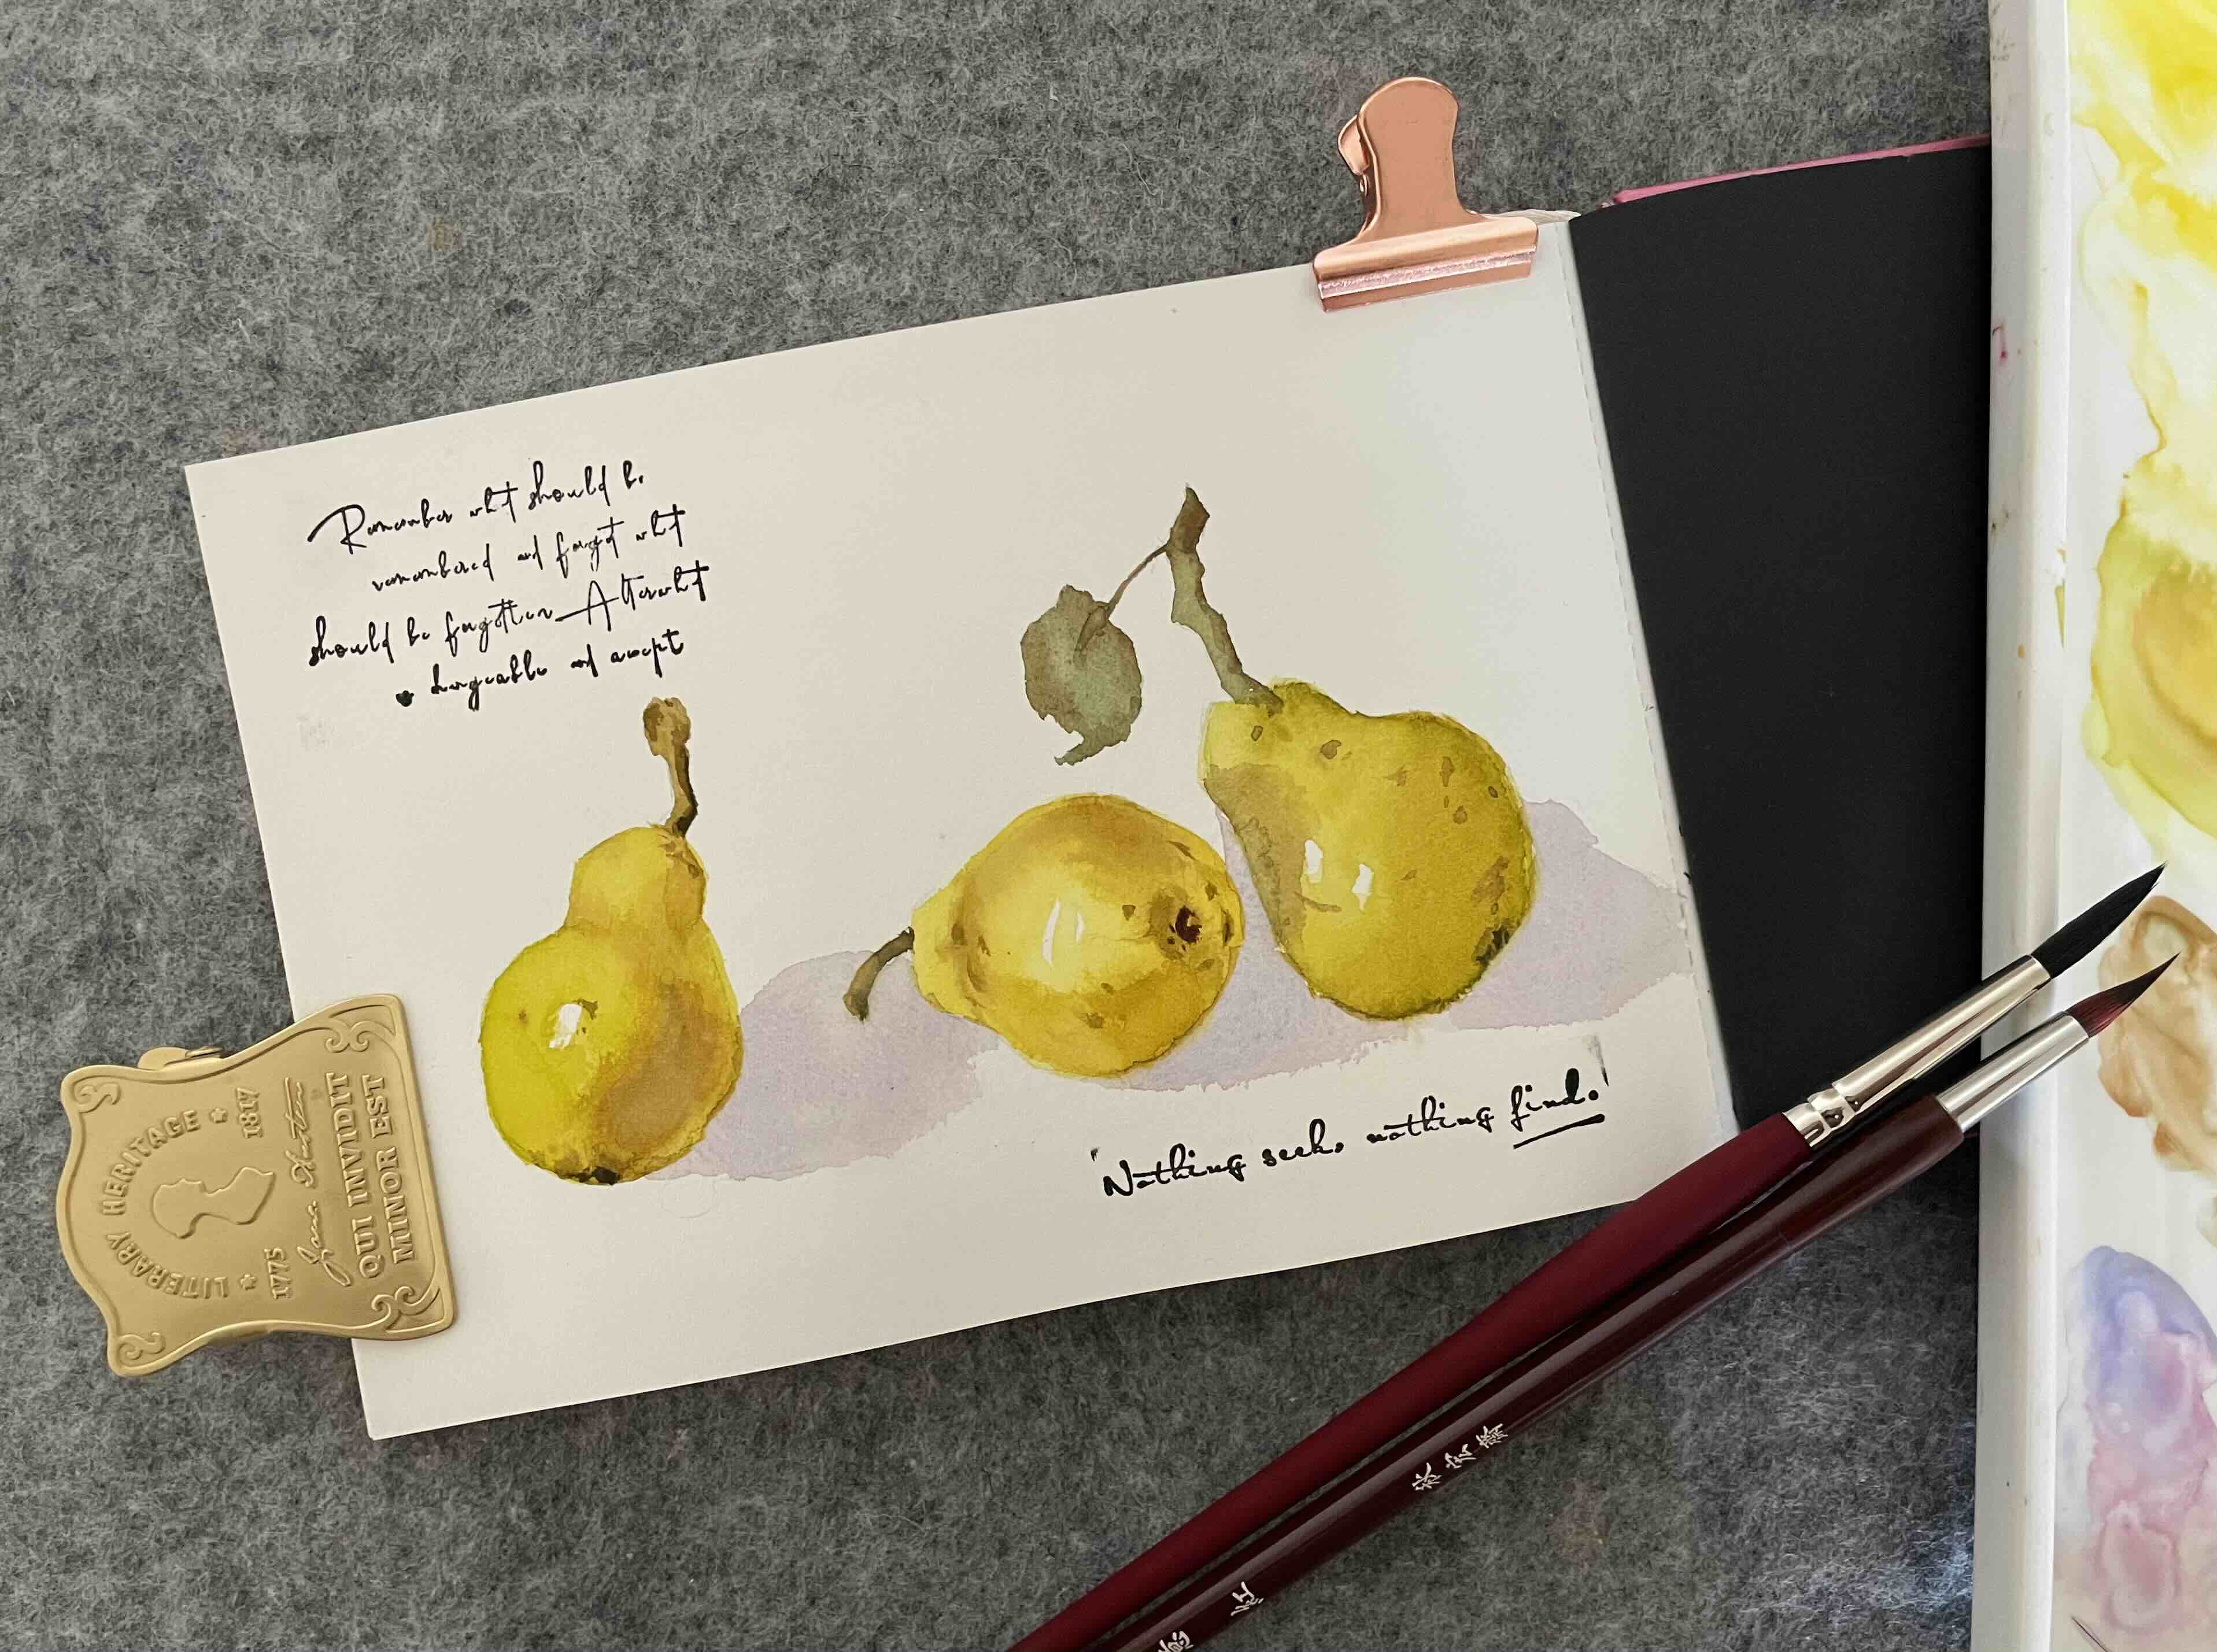 Remember what should be
remembered and forget what
should be forgotten Alter what
changeable and accept
"Nothing seek, nothing find."
LITERARY HERITAGE
1775 1817
Jane Austen
QUI INVIDIT
MINOR EST